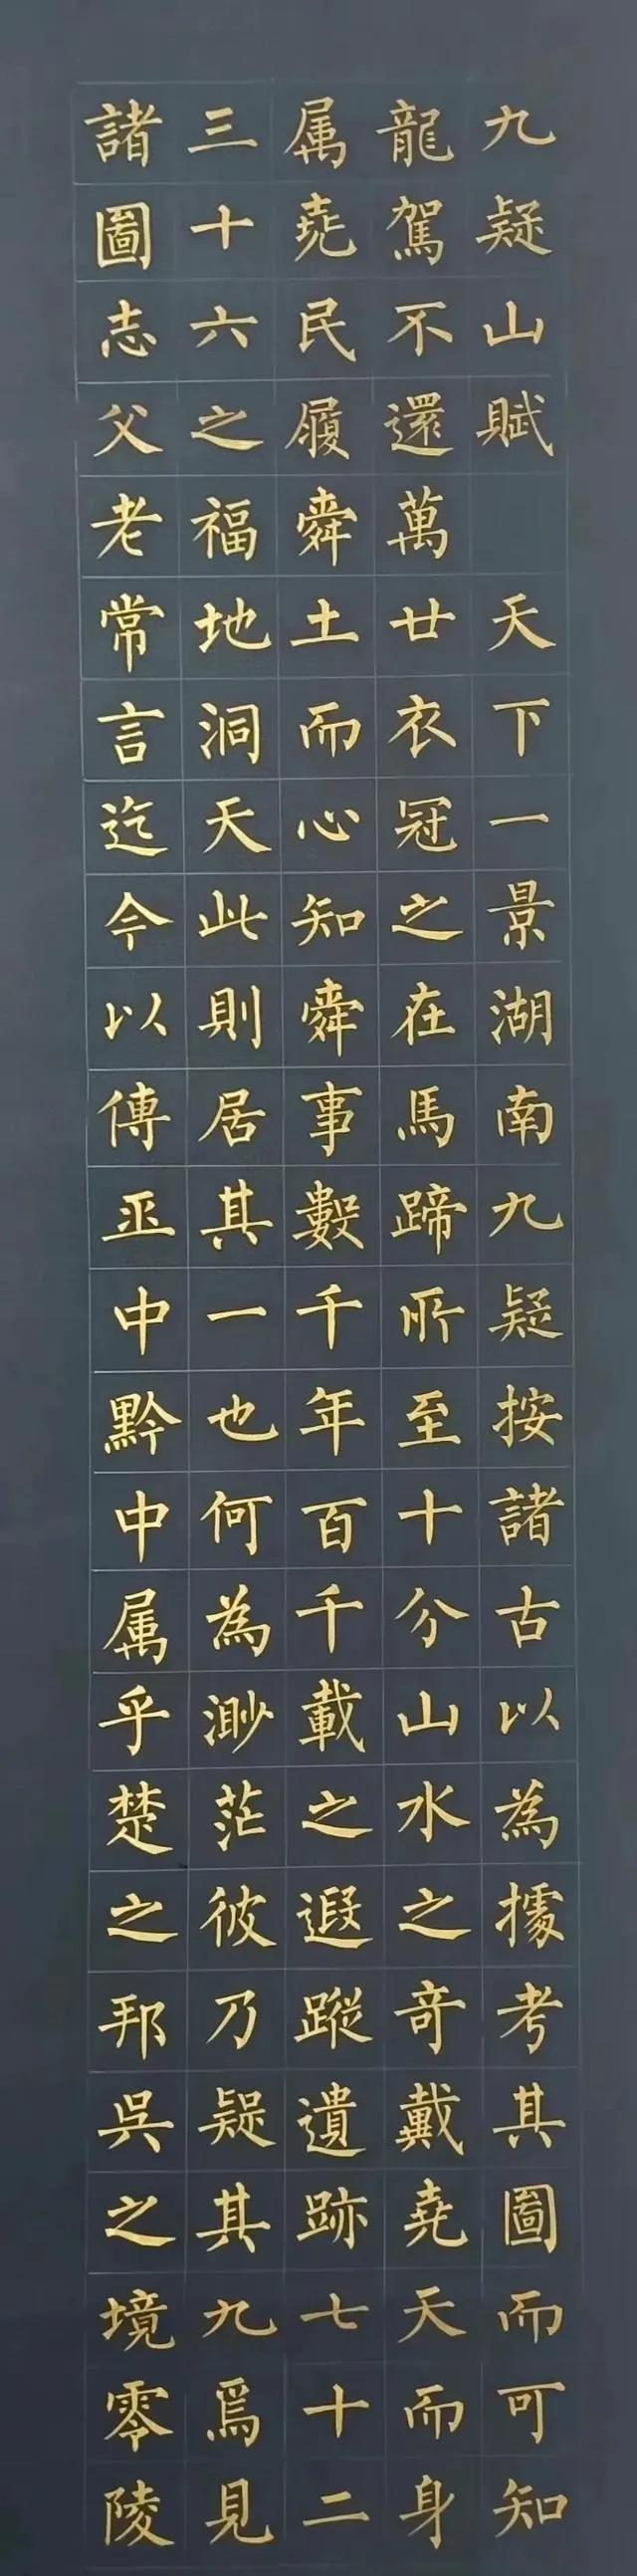 九疑山賦 天下一景湖南九疑按諸古以為據考其圖而可知
龍駕不還萬廿衣冠之在馬蹄所至十分山水之奇戴堯天而身
属堯民履舜土而心知舜事數千年百千載之遐蹤遺跡七十二
三十六之福地洞天此則居其一也何為渺茫彼乃疑其九焉見
諸圖志父老常言迄今以傳巫中黔中属乎楚之邦吳之境零陵